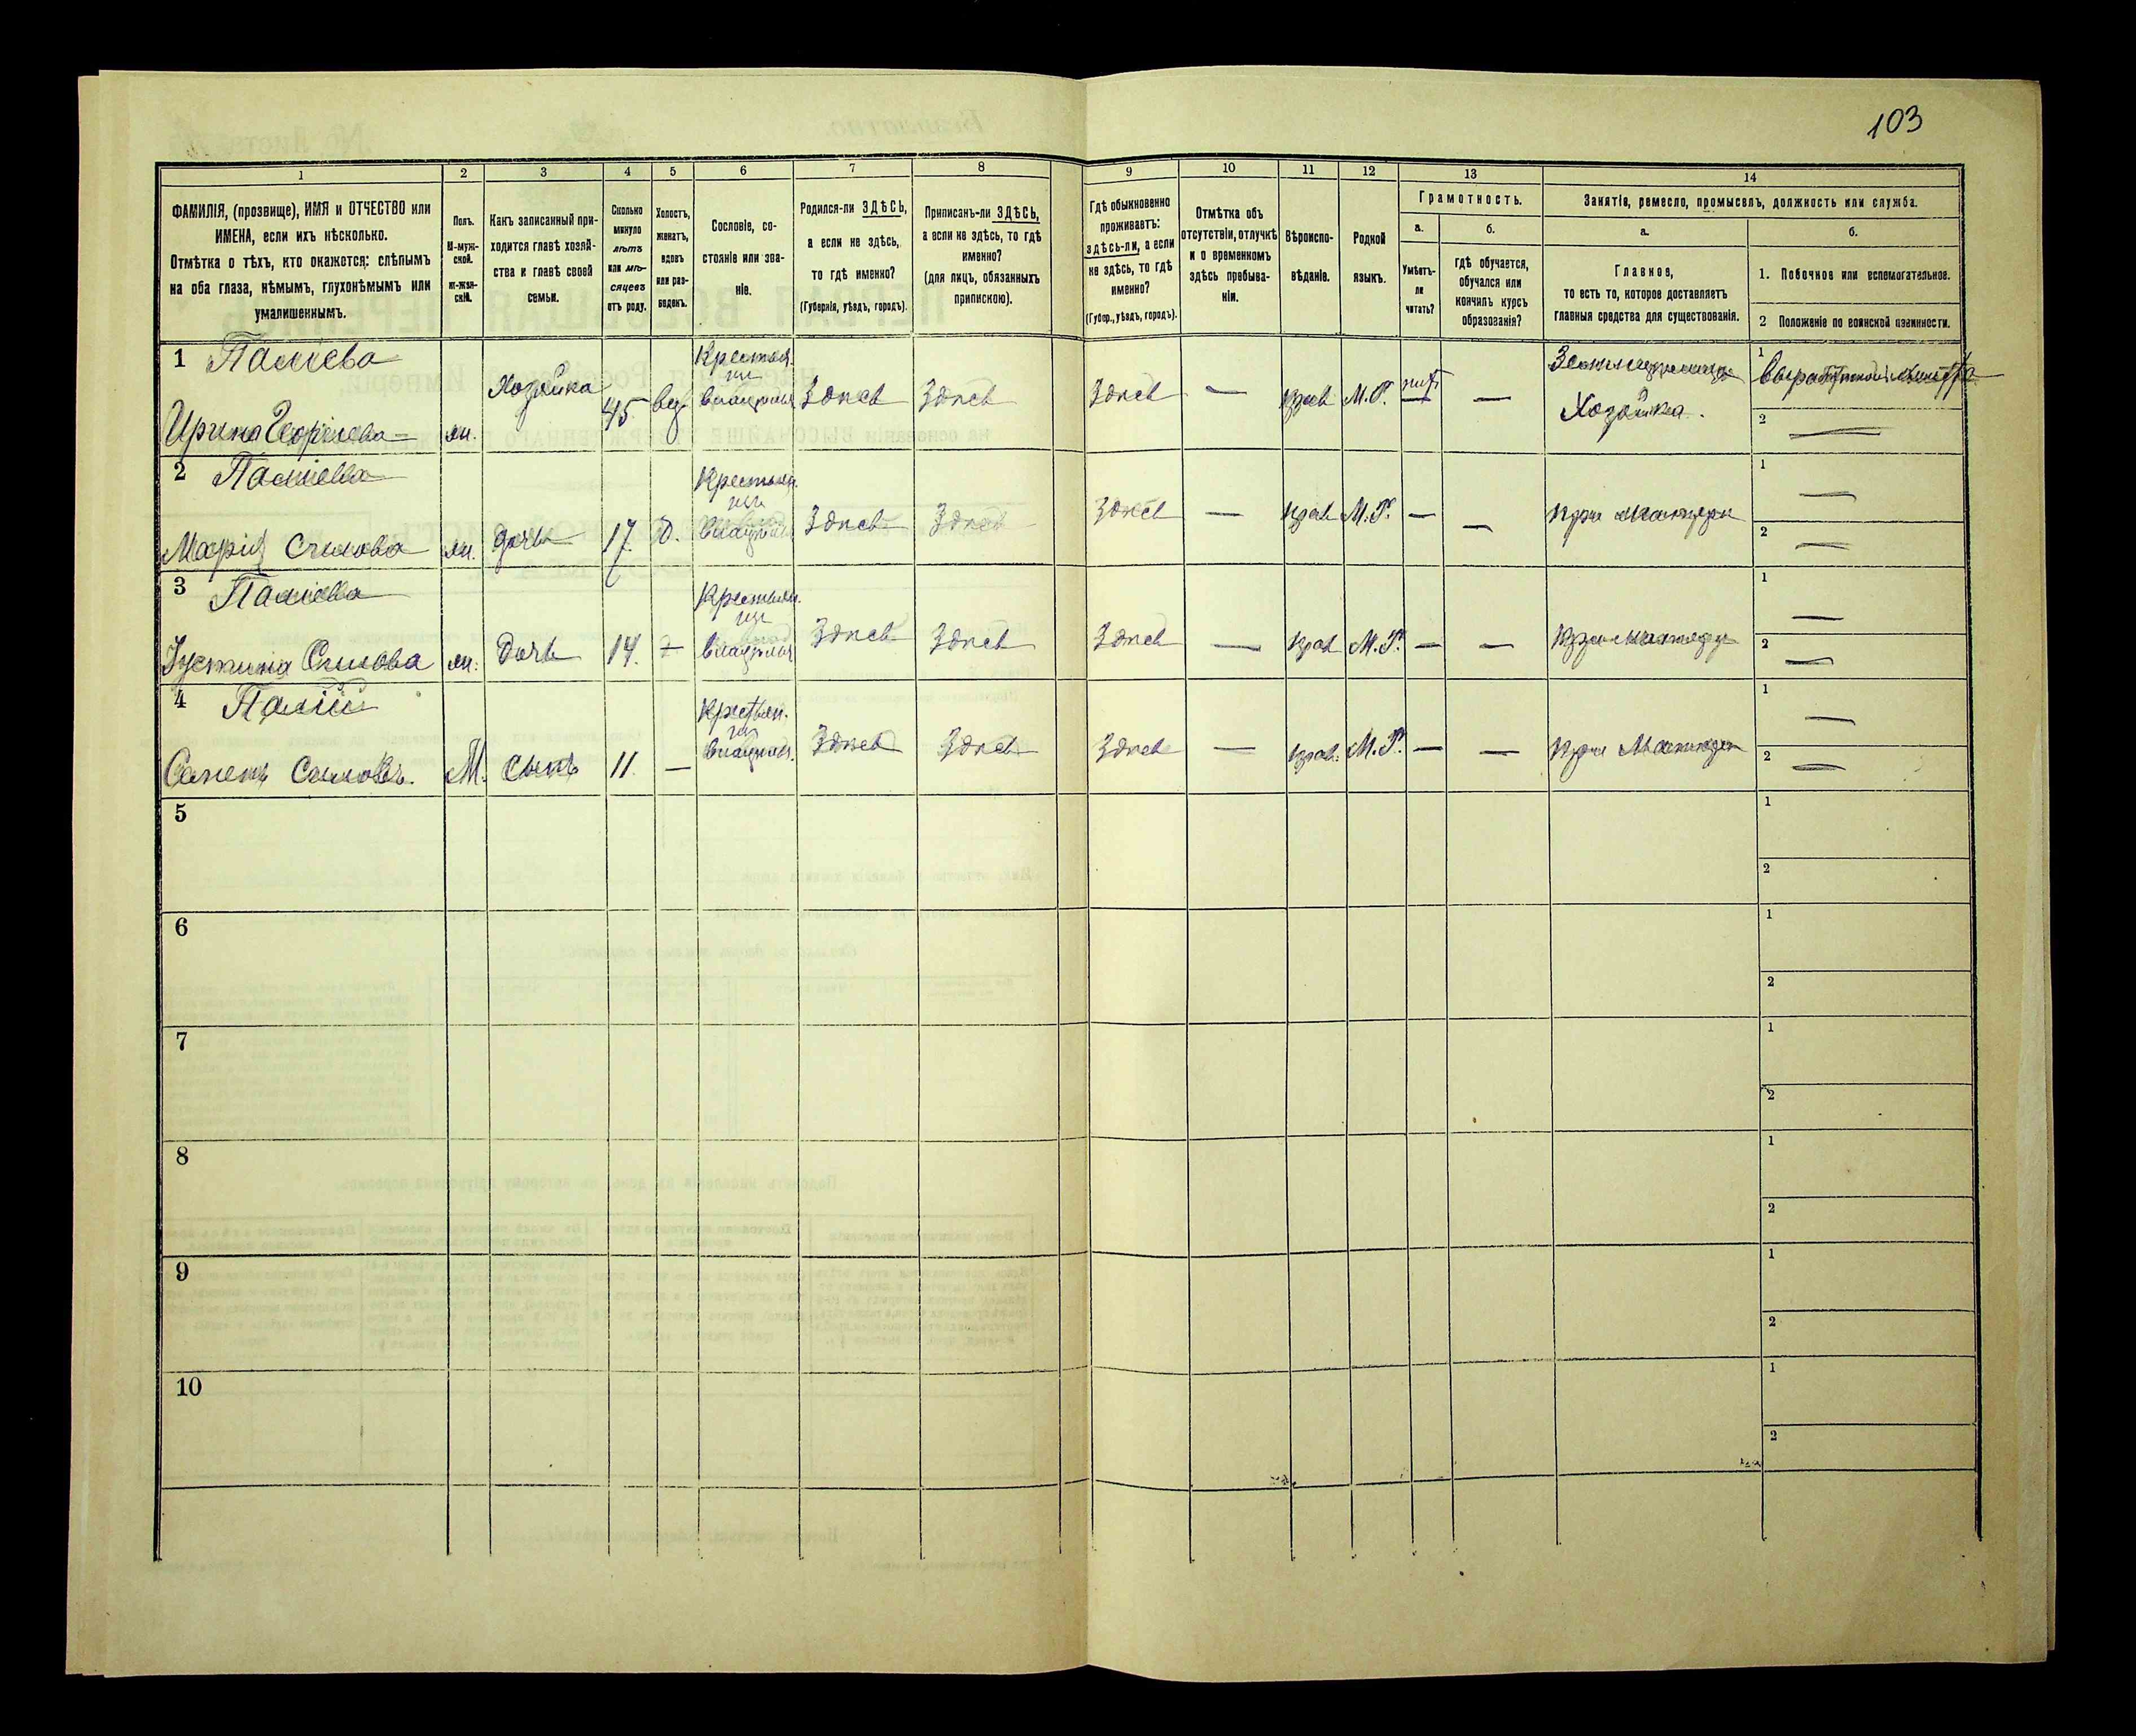 103
1
2
3
4
5
6
7
8
9
10
11
12
13
14
ФАМИЛІЯ, (прозвище), ИМЯ и ОТЧЕСТВО или
ИМЕНА, если ихъ нѣсколько.
Отмѣтка о тѣхъ, кто окажется: слѣпымъ
на оба глаза, нѣмымъ, глухонѣмымъ или
умалишеннымъ.
Полъ.
М-муж-
ской.
Ж-жен-
скій.
Какъ записанный при-
ходится главѣ хозяй-
ства и главѣ своей
семьи.
Сколько
минуло
лѣтъ
или мѣ-
сяцевъ
отъ роду.
Холостъ,
женатъ,
вдовъ
или раз-
веденъ.
Сословіе, со-
стояніе или зва-
ніе.
Родился-ли ЗДѢСЬ,
а если не здѣсь,
то гдѣ именно?
(Губернія, уѣздъ, городъ).
Приписанъ-ли ЗДѢСЬ,
а если не здѣсь, то гдѣ
именно?
(для лицъ, обязанныхъ
припискою).
Гдѣ обыкновенно
проживаетъ:
здѣсь-ли, а если
не здѣсь, то гдѣ
именно?
(Губер., уѣздъ, городъ).
Отмѣтка объ
отсутствіи, отлучкѣ
и о временномъ
здѣсь пребыва-
ніи.
Вѣроиспо-
вѣданіе.
Родной
языкъ.
Грамотность.
а.
б.
Умѣетъ-
ли
читать?
гдѣ обучается,
обучался или
кончилъ курсъ
образованія?
Занятія, ремесло, промыселъ, должность или служба.
а.
б.
Главное,
то есть то, которое доставляетъ
главныя средства для существованія.
1. Побочное или вспомогательное.
2 Положеніе по воинской повинности.
1 Паліева
Ирина
жн. Хозяйка 45 вд. Крестьян.
Здѣсь Здѣсь Здѣсь — прав М.Р. нѣтъ —
Хозяйка.
1
2 —
2 Паліева
Марія Силова жн. дочь 17. Д. Крестьян.
Здѣсь Здѣсь Здѣсь — прав М.Р. — — при матери
1 —
2 —
3 Паліева
Устинія Силова жн. Дочь 14. — Крестьян.
Здѣсь Здѣсь Здѣсь — прав М.Р. — — При матери
1 —
2 —
4 Палій
Силовъ. М. Сынъ 11. — Крестьян.
Здѣсь Здѣсь Здѣсь — прав. М.Р. — — при Матери
1 —
2 —
5
1
2
6
1
2
7
1
2
8
1
2
9
1
2
10
1
2